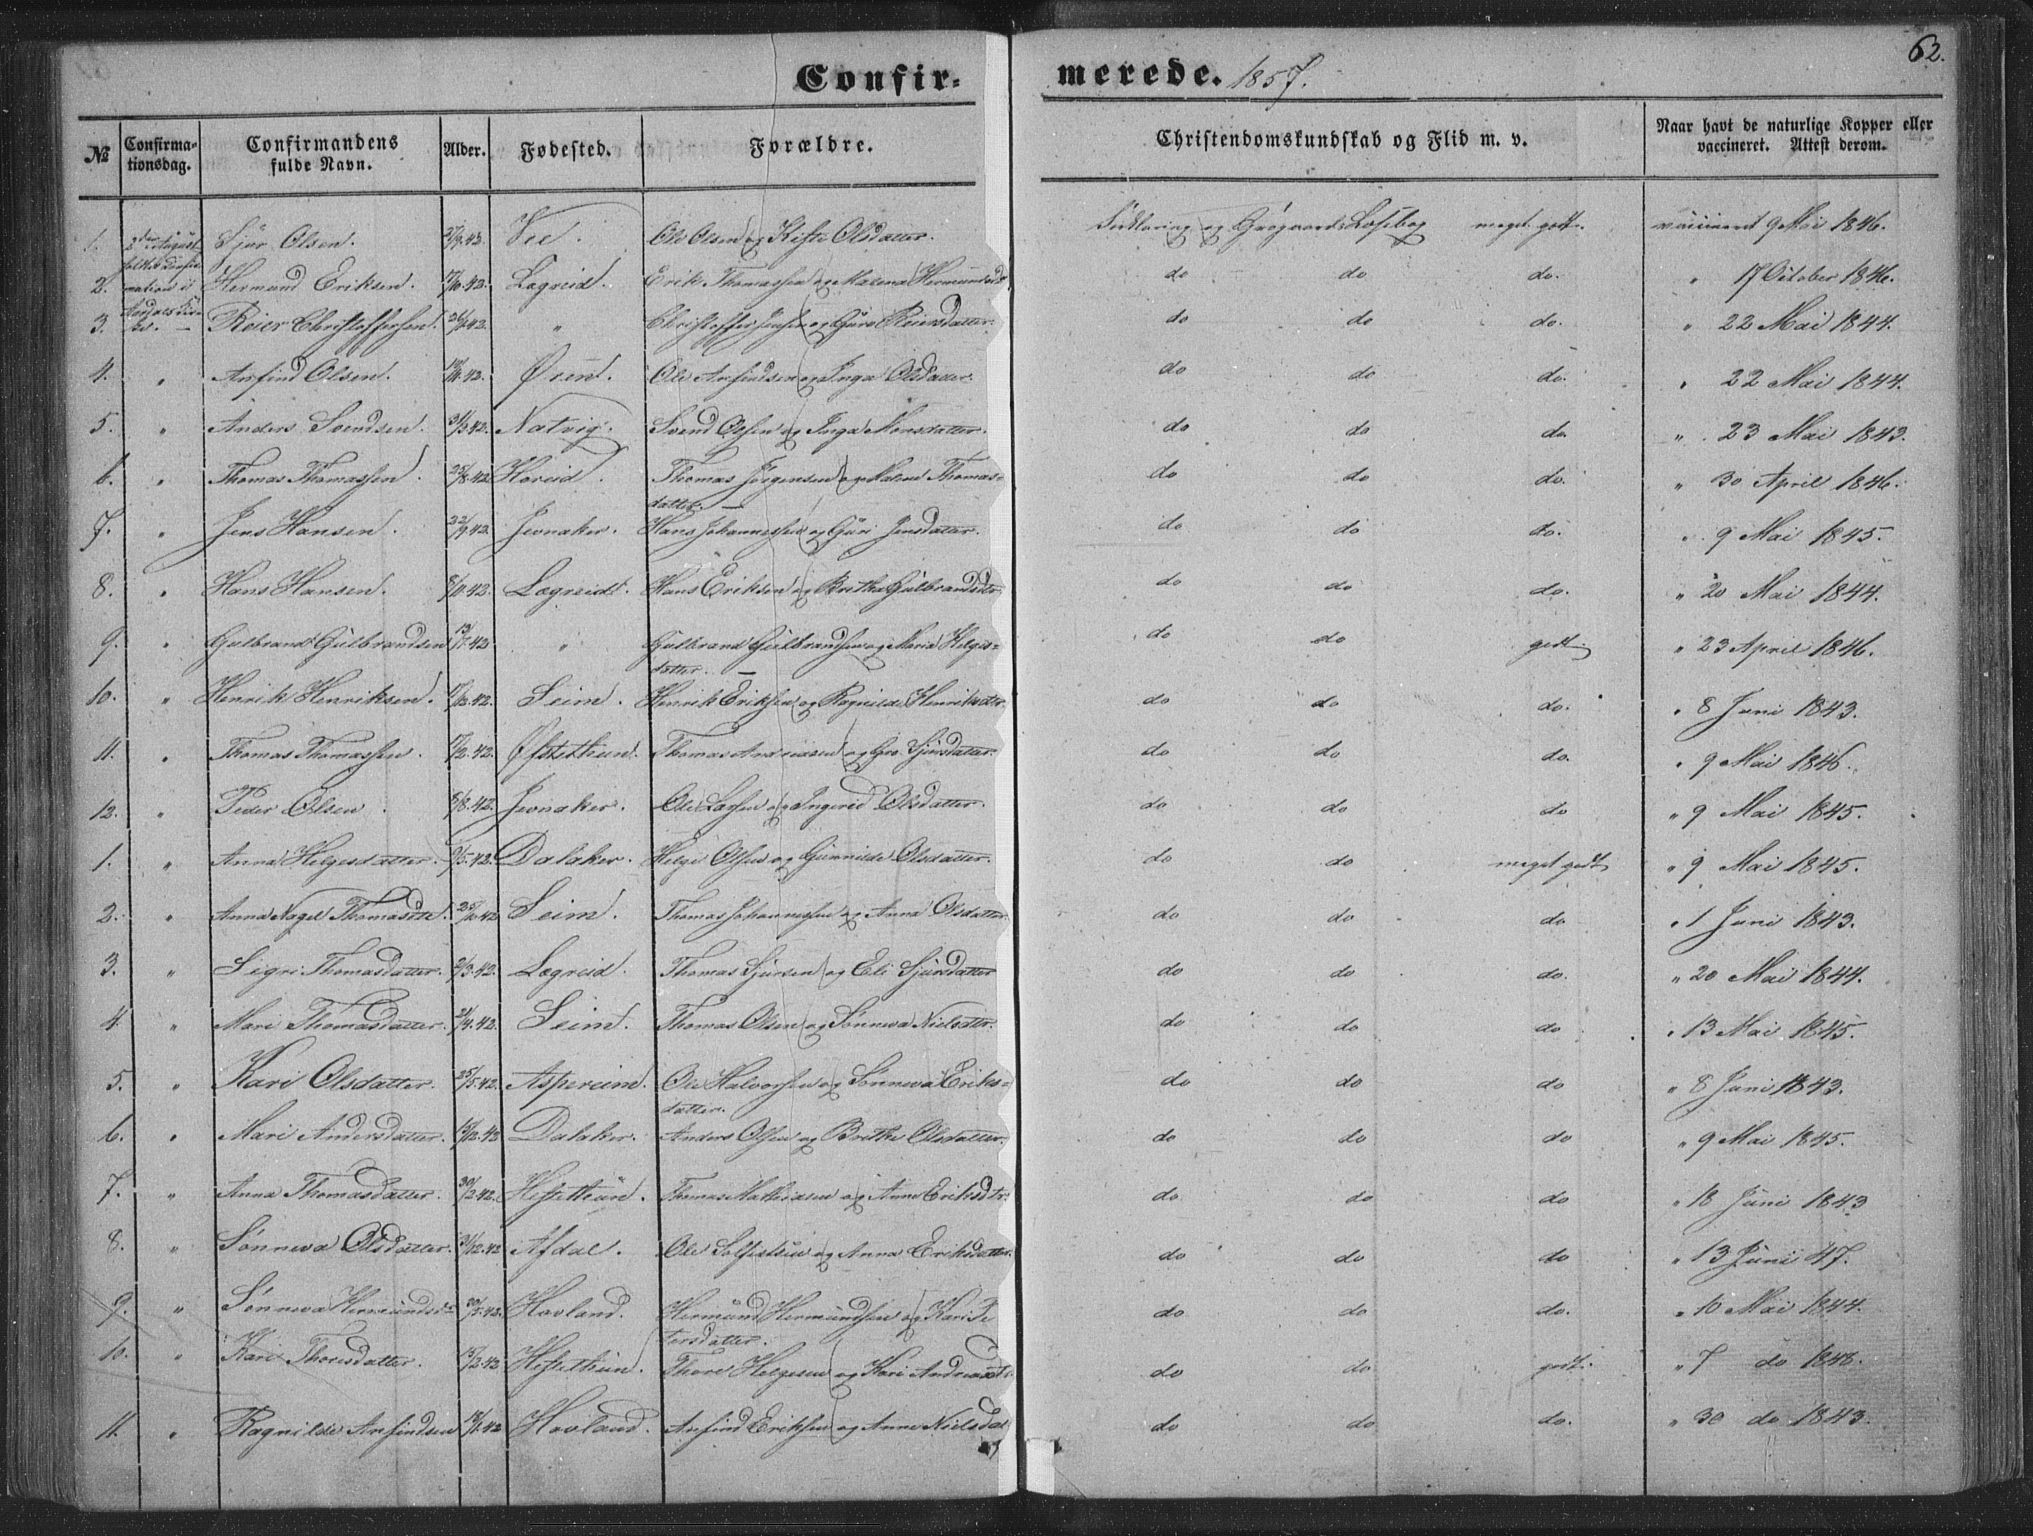 62.
Confir- merede. 1857.
№ Confirma-tionsdag. Confirmandens fulde Navn. Alder. Fødested. Forældre. Christendomskundskab og Flid m. v. Naar havt de naturlige Kopper eller vaccineret. Attest derom.
1. 2den August Sjur Olsen. 42. Vee Ole Olsen og Olsdatter. og Gröգaards Læsebog meget godt. vaccineret 9 Mai 1846.
2. Hermund Eriksen. 42. Lægreid. Erik Thomassen og Malena Hermundsdtr do do do. " 17 October 1846.
3. Reier Christoffersen. 42. " Christoffer Jensen og Guro Reiersdatter. do do do. " 22 Mai 1844.
4. " Anfind Olsen. 42. Øren. Ole Anfindsen og Inga Olsdatter. do do do. " 22 Mai 1844.
5. " Anders Svendsen. 42. Natvig. Svend Olssen og Inga Monsdatter. do do do. " 23 Mai 1843.
6. " Thomas Thomassen. 42 Horeid. Thomas Jørgensen og Thomas-
datter. do do do. " 30 April 1846.
7. " Jens Hansen. 22/9.42. Jevnaker. Hans Johannessen og Guri Jensdatter. do do do. " 9 Mai 1845.
8. " Hans Hansen. 42. Lægreid. Hans Eriksen og Britha Gulbrandsdtr do do do. " 20 Mai 1844.
9. " Gulbrand Gulbrandsen 42 " Gulbrand Gulbrandsen og Maria Helges-
datter. do do godt " 23 April 1846.
10. " Henrik Henriksen. 42. Seim. Henrik Eriksen og Ragnilde Henriksdtr. do do do. " 8 Juni 1843.
11. " Thomas Thomassen. 42. Øfstethun. Thomas Andreasen og Gro Sjursdatter. do do do. " 9 Mai 1846.
12. " Peder Olsen. 8/8.42. Jevnaker. Ole Larsen og Ingerid Olsdatter. do do do " 9 Mai 1845.
1. " Anna Helgesdatter. 9/5.42. Dalaker. Helge Olssen og Gunnilde Olsdatter. do do meget godt " 9 Mai 1845.
2. " Anna Nagel Thomasdtr. 42 Seim. Thomas Johannessen og Anna Olsdatter. do do do " 1 Juni 1843.
3. " Sigri Thomasdatter. 2/3.42. Lægreid. Thomas Sjursen og Eli Sjursdatter do do do. " 20 Mai 1844.
4. " Mari Thomasdatter. 42. Seim. Thomas Olsen og Sønneva Nielsdtr. do do do " 13 Mai 1845.
5. " Kari Olsdatter. 25/5.42. Aspereim. Ole Halvorsen og Sønneva Eriks-
datter. do do do " 8 Juni 1843.
6. " Mari Andersdatter. Dalaker. Anders Olsen og Brithe Olsdatter. do do do " 9 Mai 1845.
7. " Anna Thomasdatter. 42. Hestethun. Thomas Mathiasen og Anne Eriksdtr. do do do " 18 Juni 1843
8. " Sønneva Olsdatter. 42 Afdal. Ole og Anna Eriksdatter. do do do " 13 Juni 47.
9. " Sønneva Hermundsdtr 42. Hovland. Hermund Hermundsen og Kari Pe
tersdatter. do do do. " 10 Mai 1844.
10. " Kari Thoresdatter. Hestethun. Thore Helgesen og Kari Andreasdtr do do godt. " 7 do 1846.
11. " Ragnilde Anfindsen 42 Hovland. Anfind Eriksen og Anne Nielsdat do do do. " 30 do 1843.